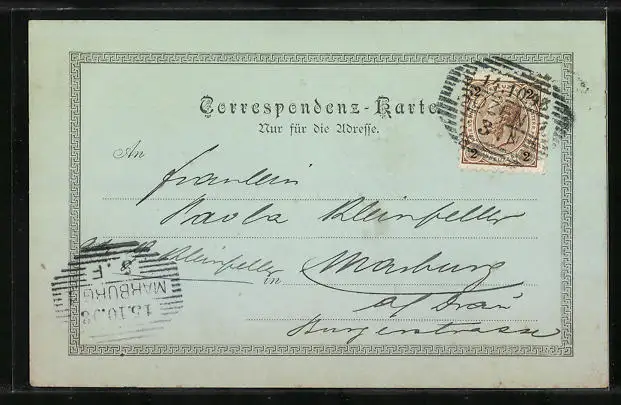 Correspondenz-Karte
Nur für die Adresse.
An
Fraulein
Paola Kleinfeller
Kleinfeller
in Marburg
a/ Drau
Burgerstrasse
2 2
2 2
MARBURG
15.10.98
8.F